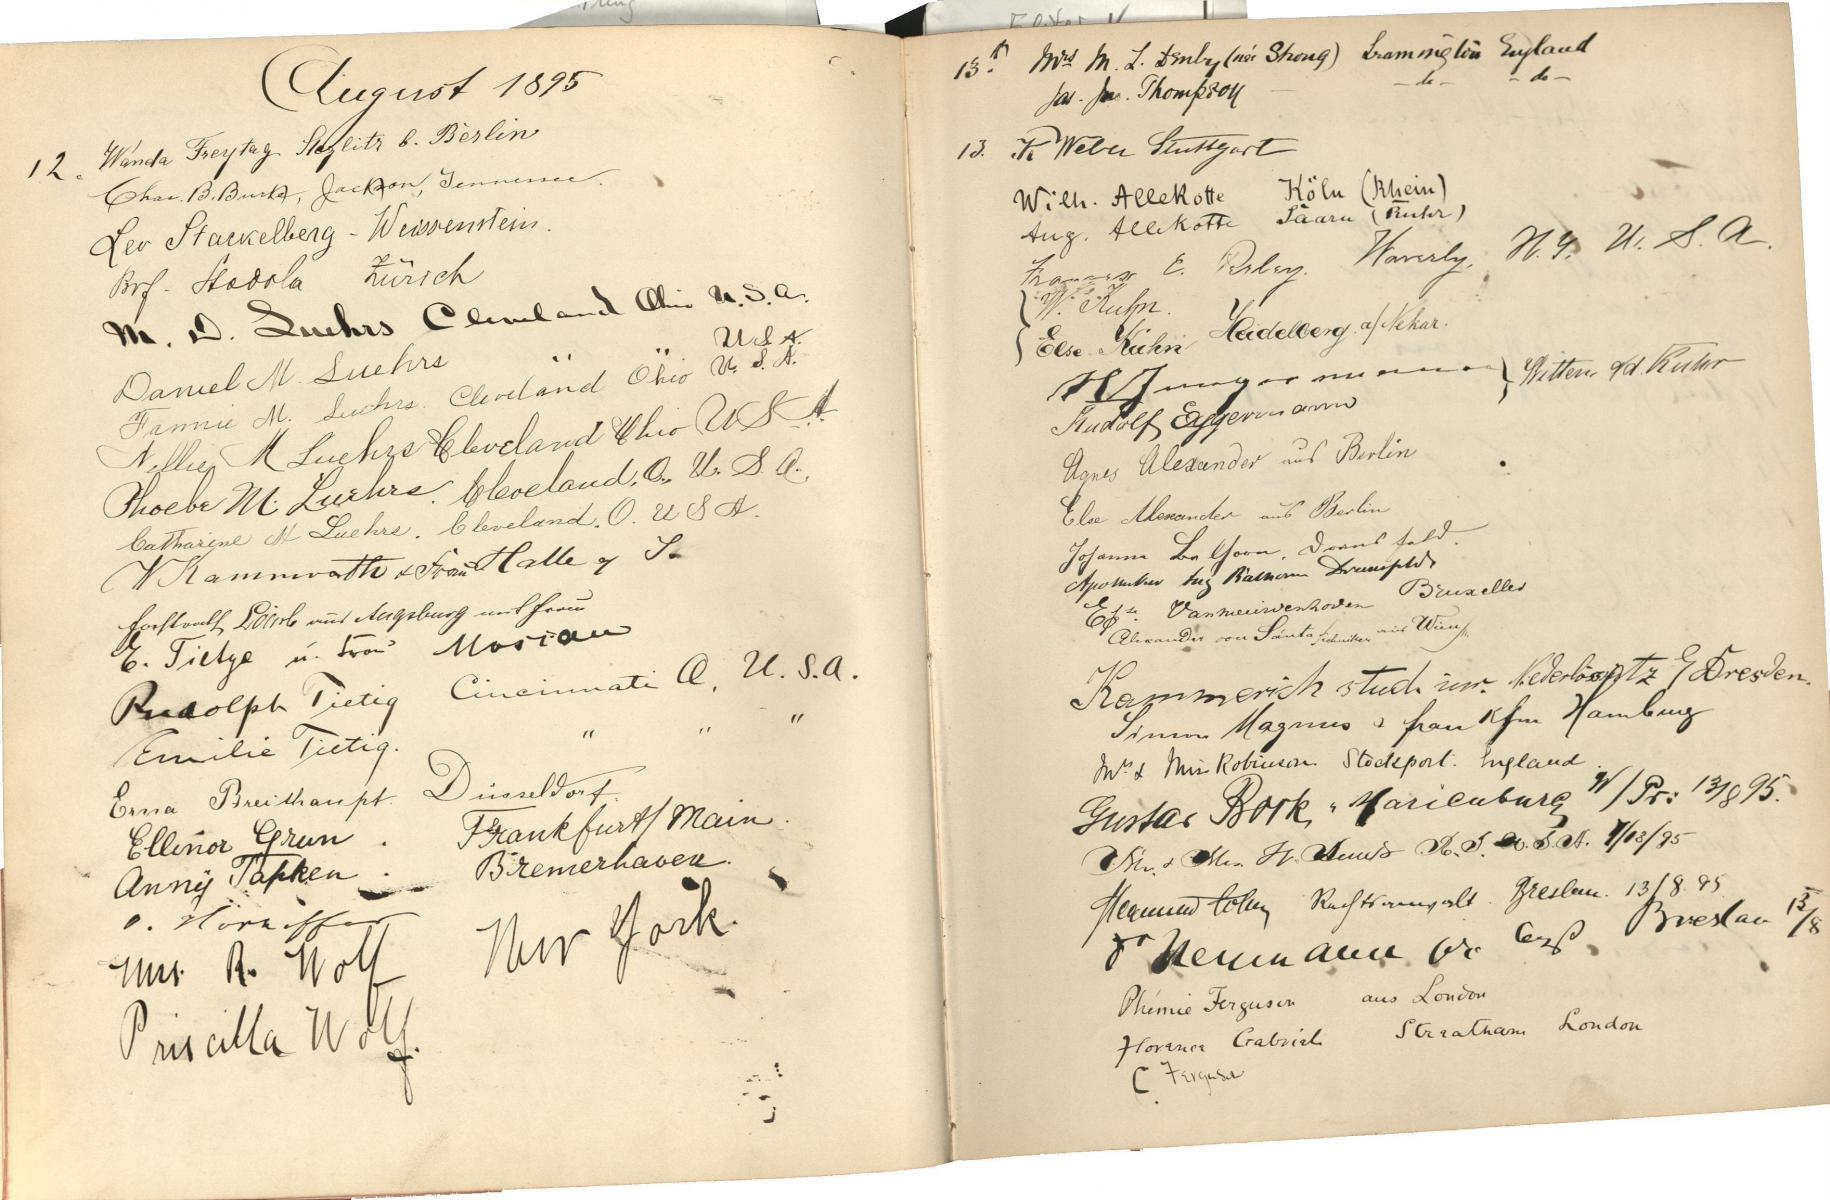 August 1895
12. Wanda Freytag Steglitz b. Berlin
Chas. B. Burke, Jackson, Tennessee.
Leo Stackelberg - Weissenstein.
Prof. Stodola Zürich
M. D. Luehrs Cleveland Ohio U.S.A.
Daniel M. Luehrs " " U S A.
Fannie M. Luehrs. Cleveland Ohio U. S. A.
Nellie M Luehrs Cleveland Ohio U S A
Phoebe M. Luehrs. Cleveland, O., U. S. A.
Catharine M Luehrs. Cleveland. O. U S A.
W Kammrath & Frau Halle a/ S.
aus Augsburg mit Frau
E. Tietze u. Frau
Rudolph Tietig Cincinnati O, U.S.A.
Emilie Tietig. " " "
Erna Breithaupt. Düsseldorf.
Ellinor Grun. Frankfurt/Main.
Anny Tapken. Bremerhaven.
Mrs. R. Wolf New York.
Priscilla Wolf.
13th Mrs M. L. Denby (née Strong) Leamington England
Jas. Thompson — do — — do —
13. K Weber Stuttgart
Wilh. Allekotte Köln (Rhein)
Aug. Allekotte Saarn (Ruhr)
E. Waverly, N. Y. U. S. A.
W. Kuhn.
Else Kuhn Heidelberg a/Nekar.
H Jungermann Witten a/d. Ruhr
Rudolf Eggermann
Agnes Alexander aus Berlin
Else Alexander aus Berlin
Johanna
Apotheker
Vanmeuwenhoven Bruxelles
Alexander von aus Wien
Kammerich stud. iur. Dresden.
Simon Magnus & frau Kfm Hamburg
Mr & Mrs Robinson Stockport. England.
Gustav Bork, Marienburg W/Pr: 13/8 95.
Mr. & Mrs. H. U.S.A. 8/13/95
Rechtsanwalt. Breslau. 13/8. 95
Dr Neumann Breslau 13/8
Phémie Ferguson aus London
Florence Gabriel Streatham London
C Ferguson